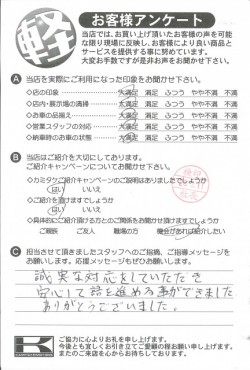 軽
お客様アンケート
当店では、お買い上げ頂いたお客様の声を可能
な限り現場に反映し、お客様により良い商品と
サービスを提供する事に努めています。
大変お手数ですが是非お声をお聞かせ下さい。
A 当店を実際にご利用になった印象をお聞かせ下さい。
◇店の印象 大満足 満足 ふつう やや不満 不満
◇店内・展示場の清掃 大満足 満足 ふつう やや不満 不満
◇お車の品揃え 大満足 満足 ふつう やや不満 不満
◇営業スタッフの対応 大満足 満足 ふつう やや不満 不満
◇納車時のお車の状態 大満足 満足 ふつう やや不満 不満
B 当店はご紹介を大切にしております。
ご紹介キャンペーンについてお聞かせ下さい。
◇カミタケご紹介キャンペーンのご説明はありましたでしょうか
はい いいえ
◇ご紹介を頂けますでしょうか
はい いいえ
◇具体的にご紹介頂ける方とのご関係をお聞かせ頂けますでしょうか
ご親戚 ご友人 職場の方 機会があれば紹介したい
C 担当させて頂きましたスタッフへのご指摘、ご指導メッセージを
お願いします。応援メッセージもぜひお願いします。
誠実な対応をしていただき
安心して話を進める事ができました
ありがとうございました。
K
ご協力に心よりお礼を申し上げます。
今後とも宜しくお引き立てご愛顧の程お願い申し上げます。
またのご来店を心からお待ちしております。